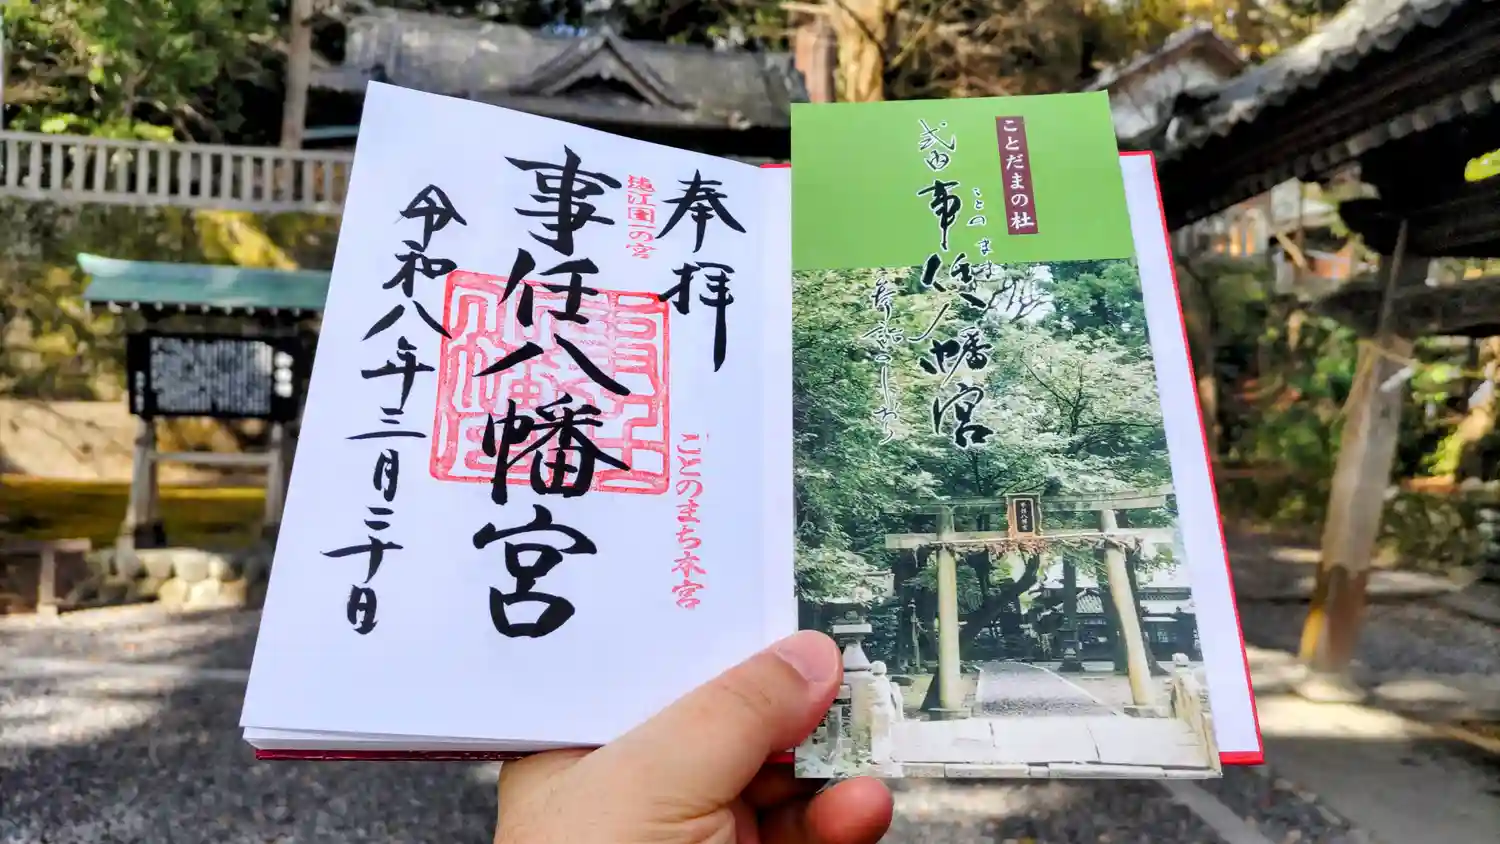 奉拝
遠江国一の宮
ことのまち本宮
事任八幡宮
令和八年三月二十日
ことだまの社
ことのまま
式内 事任八幡宮
参詣のしおり
事任八幡宮